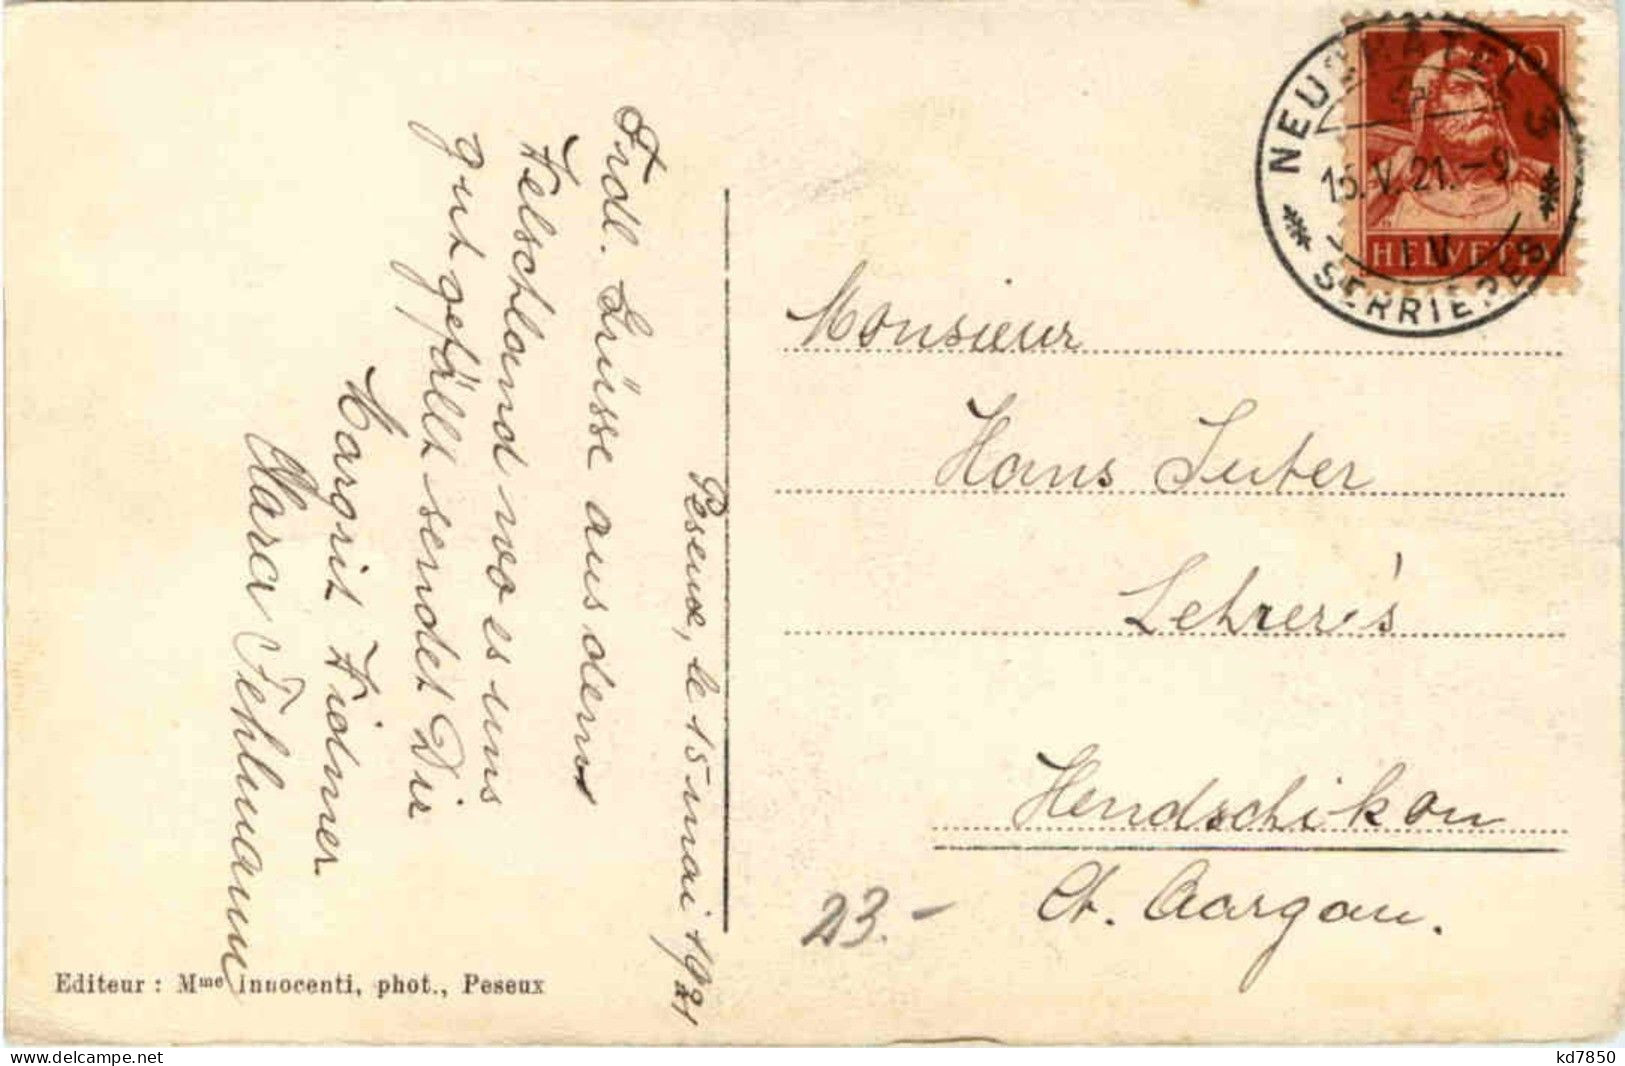 Peseux, le 15 mai 1921
Frdl. Grüsse aus dem
Welschland wo es uns
gut gefällt sendet Dir
Margrit Widmer
Klara Fehlmann
Editeur : Mme Innocenti, phot., Peseux
NEUCHÂTEL 3
15.V.21.-9
IV
SERRIERES
10
HELVETIA
Monsieur
Hans Suter
Lehrer's
Hendschikon
Ct. Aargau.
23.-
www.delcampe.net
kd7850